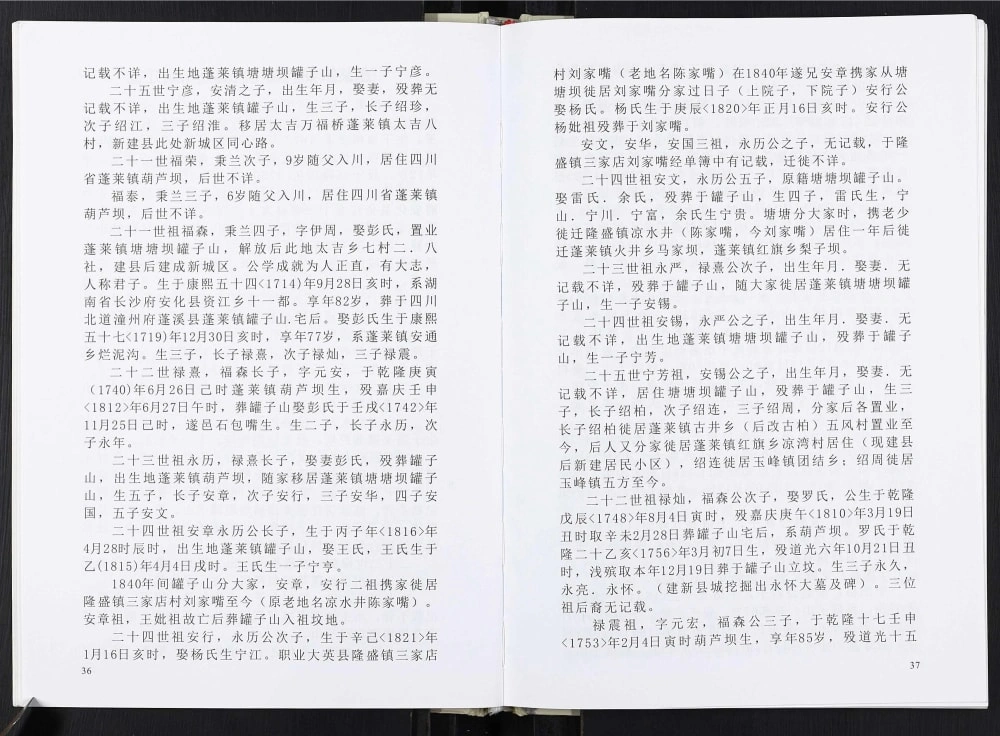 记载不详，出生地蓬莱镇塘塘坝罐子山，生一子宁彦。
二十五世宁彦，安清之子，出生年月，娶妻，殁葬无
记载不详，出生地蓬莱镇罐子山，生三子，长子绍珍，
次子绍江，三子绍淮。移居太吉万福桥蓬莱镇太吉八
村，新建县此处新城区同心路。
二十一世福荣，秉兰次子，9岁随父入川，居住四川
省蓬莱镇葫芦坝，后世不详。
福泰，秉兰三子，6岁随父入川，居住四川省蓬莱镇
葫芦坝，后世不详。
二十一世祖福森，秉兰四子，字伊周，娶彭氏，置业
蓬莱镇塘塘坝罐子山，解放后此地太吉乡七村二．八
社，建县后建成新城区。公学成就为人正直，有大志，
人称君子。生于康熙五十四<1714)年9月28日亥时，系湖
南省长沙府安化县资江乡十一都。享年82岁，葬于四川
北道潼州府蓬溪县蓬莱镇罐子山.宅后。娶彭氏生于康熙
五十七<1719)年12月30日亥时，享年77岁，系蓬莱镇安通
乡烂泥沟。生三子，长子禄熹，次子禄灿，三子禄震。
二十二世禄熹，福森长子，字元安，于乾隆庚寅
（1740)年6月26日己时蓬莱镇葫芦坝生，殁嘉庆壬申
<1812>年6月27日午时，葬罐子山娶彭氏于壬戌<1742>年
11月25日己时，遂邑石包嘴生。生二子，长子永历，次
子永年。
二十三世祖永历，禄熹长子，娶妻彭氏，殁葬罐子
山，出生地蓬莱镇葫芦坝，随家移居蓬莱镇塘塘坝罐子
山，生五子，长子安章，次子安行，三子安华，四子安
国，五子安文。
二十四世祖安章永历公长子，生于丙子年<1816>年
4月28时辰时，出生地蓬莱镇罐子山，娶王氏，王氏生于
乙(1815)年4月4日戌时。王氏生一子宁亨。
1840年间罐子山分大家，安章，安行二祖携家徙居
隆盛镇三家店村刘家嘴至今（原老地名凉水井陈家嘴）。
安章祖，王妣祖故亡后葬罐子山入祖坟地。
二十四世祖安行，永历公次子，生于辛己<1821>年
1月16日亥时，娶杨氏生宁江。职业大英县隆盛镇三家店
36
村刘家嘴（老地名陈家嘴）在1840年遂兄安章携家从塘
塘坝徙居刘家嘴分家过日子（上院子，下院子）安行公
娶杨氏。杨氏生于庚辰<1820>年正月16日亥时。安行公
杨妣祖殁葬于刘家嘴。
安文，安华，安国三祖，永历公之子，无记载，于隆
盛镇三家店刘家嘴经单簿中有记载，迁徙不详。
二十四世祖安文，永历公五子，原籍塘塘坝罐子山。
娶雷氏．余氏，殁葬于罐子山，生四子，雷氏生，宁
山．宁川．宁富，余氏生宁贵。塘塘分大家时，携老少
徙迁隆盛镇凉水井（陈家嘴，今刘家嘴）居住一年后徙
迁蓬莱镇火井乡马家坝，蓬莱镇红旗乡梨子坝。
二十三世祖永严，禄熹公次子，出生年月．娶妻．无
记载不详，殁葬于罐子山，随大家徙居蓬莱镇塘塘坝罐
子山，生一子安锡。
二十四世祖安锡，永严公之子，出生年月．娶妻．无
记载不详，出生地蓬莱镇塘塘坝罐子山，殁葬于罐子
山，生一子宁芳。
二十五世宁芳祖，安锡公之子，出生年月，娶妻．无
记载不详，居住塘塘坝罐子山，殁葬于罐子山，生三
子，长子绍柏，次子绍连，三子绍周，分家后各置业，
长子绍柏徙居蓬莱镇古井乡（后改古柏）五风村置业至
今，后人又分家徙居蓬莱镇红旗乡凉湾村居住（现建县
后新建居民小区），绍连徙居玉峰镇团结乡；绍周徙居
玉峰镇五方至今。
二十二世祖禄灿，福森公次子，娶罗氏，公生于乾隆
戊辰<1748>年8月4日寅时，殁嘉庆庚午<1810>年3月19日
丑时取辛未2月28日葬罐子山宅后，系葫芦坝。罗氏于乾
隆二十乙亥<1756>年3月初7日生，殁道光六年10月21日丑
时，浅殡取本年12月19日葬于罐子山立坟。生三子永久，
永亮．永怀。（建新县城挖掘出永怀大墓及碑）。三位
祖后裔无记载。
禄震祖，字元宏，福森公三子，于乾隆十七壬申
<1753>年2月4日寅时葫芦坝生，享年85岁，殁道光十五
37